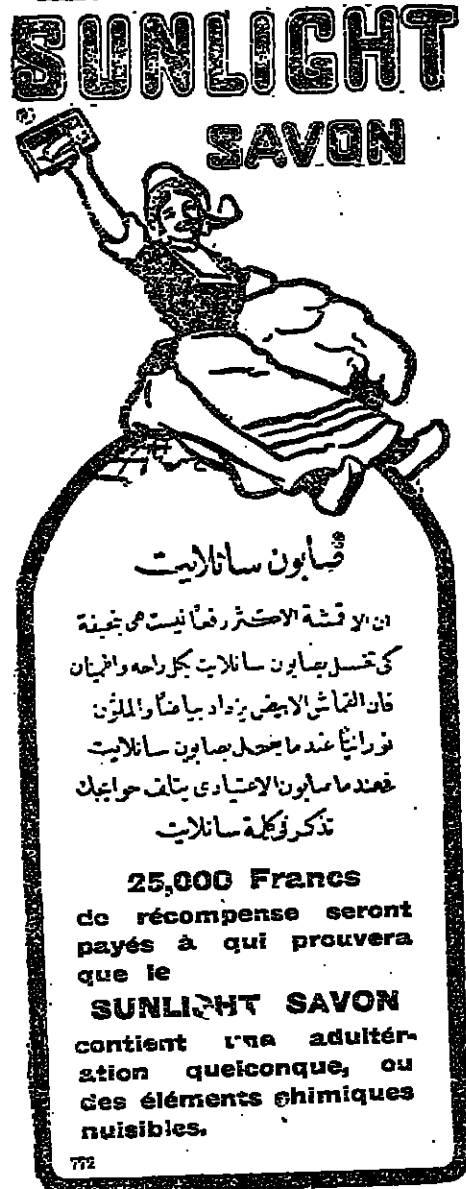 SUNLIGHT
SAVON
صابون سانلايت
ان الاقمشة الاكثر رفعاً ليست هى بخيفة
كى تغسل بصابون سانلايت بكل راحه واطمئنان
فان القماش الابيض يزداد بياضاً والملوّن
نورانيّاً عندما بصابون سانلايت
فعندما صابون الاعتيادى يتلف حوايجك
تذكر فى كلمة سانلايت
25,000 Francs
de récompense seront
payés à qui prouvera
que le
SUNLIGHT SAVON
contient une adultér-
ation quelconque, ou
des éléments chimiques
nuisibles.
772